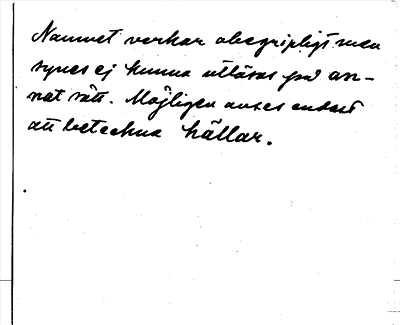 Namnet verkar obegripligt men
synes ej kunna utläsas på an-
nat sätt. Möjligen avses endast
att beteckna hällar.